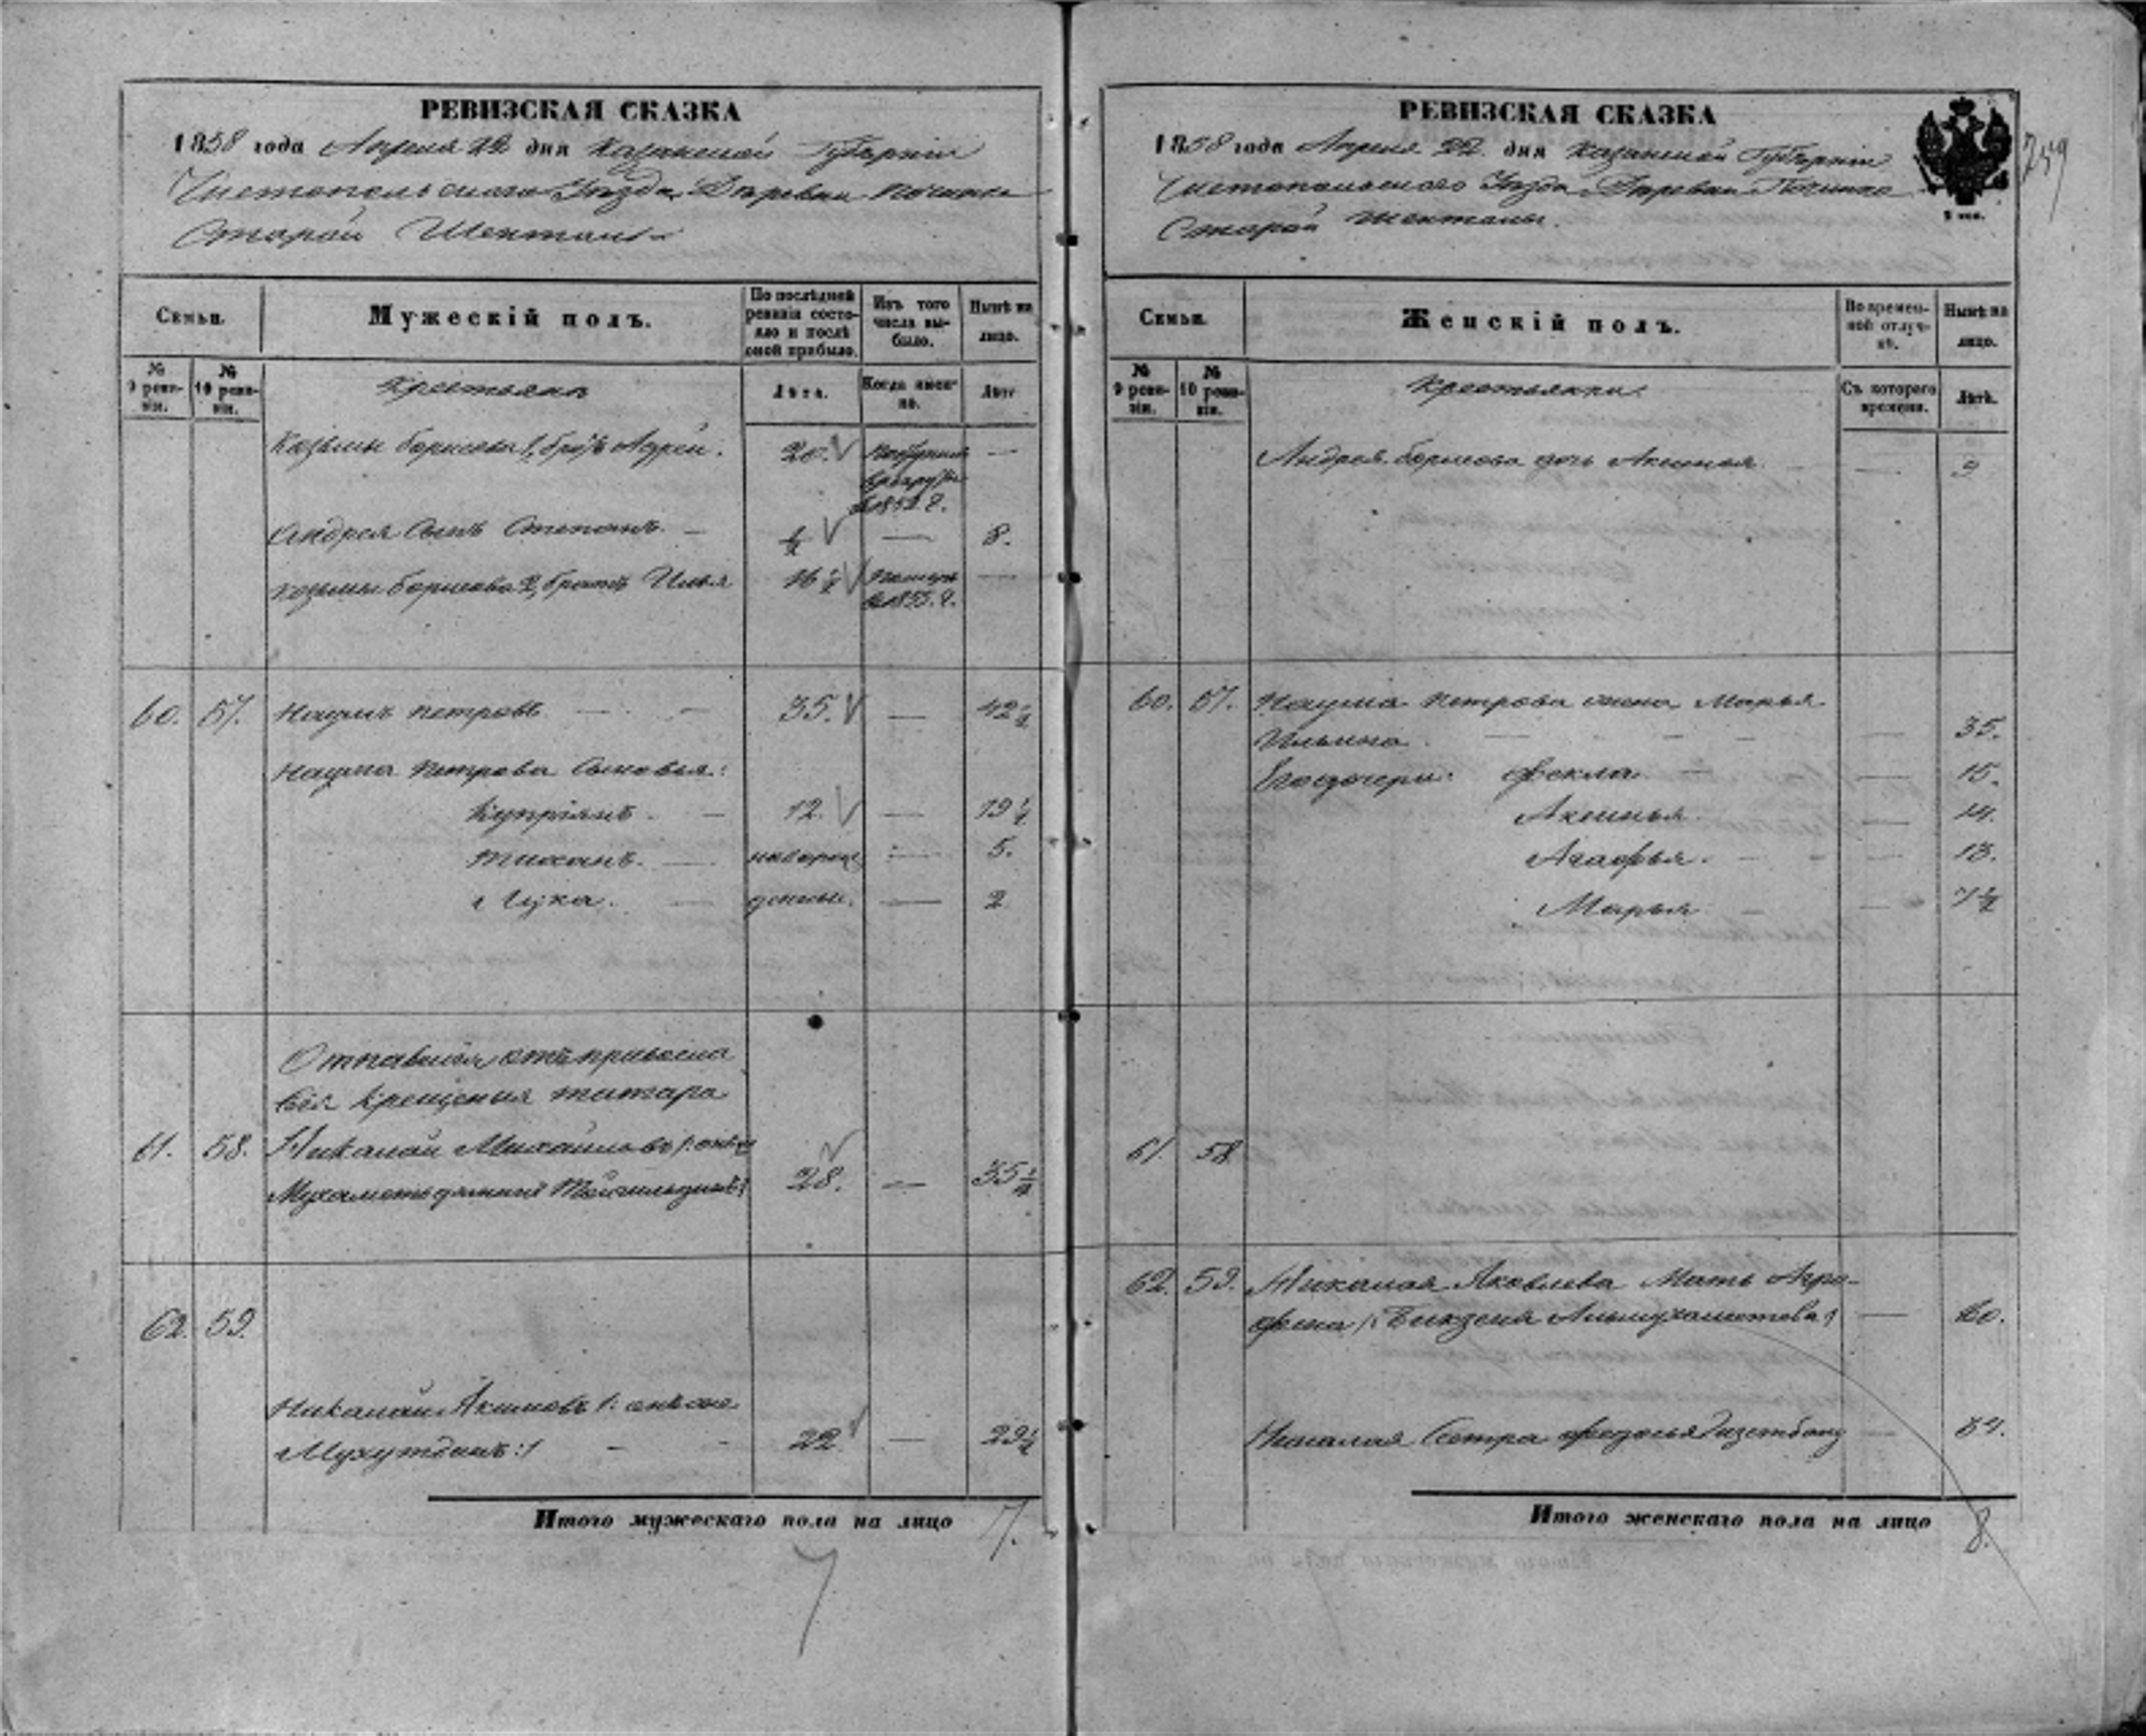 РЕВИЗСКАЯ СКАЗКА
1858 года Апреля 22 дня Казанской Губерніи
Чистопольскаго Уезда Деревни Починка
Старой Шенталы
Семьи.
Мужескій полъ.
По послѣдней ревизіи состояло и послѣ оной прибыло.
Изъ того числа выбыло.
Нынѣ на лицо.
№ 9 ревизіи.
№ 10 ревизіи.
Крестьяне
Лѣта.
Когда именно.
Лѣта
Козьмы Борисова 1, братъ Андрей. 20. —
в 1852. г.
Андрея Сынъ Степанъ. — 1/2 — 8.
Козьмы Борисова 2, братъ Илья 16 1/2 —
в 1855. г.
60. 57. Наумъ Петровъ. — 35. — 42 1/2
Наума Петрова Сыновья:
Купріянъ. — 12. — 19 1/2
Тихонъ. — новорож — 5.
Лука. — денные. — 2
Отпавшія отъ
Крещенія татара
61. 58. Николай Михайловъ /: онже
28. — 35 1/2
62. 59.
Николай Акимовъ /: онже
22 — 29 1/2
Итого мужескаго пола на лицо 7.
7
РЕВИЗСКАЯ СКАЗКА
1858 года Апреля 22 дня Казанской Губерніи
Чистопольскаго Уезда Деревни Починка
Старой Шенталы.
259
Семьи.
Женскій полъ.
Во временной отлучкѣ.
Нынѣ на лицо.
№ 9 ревизіи.
№ 10 ревизіи.
Крестьянки.
Съ котораго времени.
Лѣта.
Андрея Борисова дочь Аксинья — 9
60. 57. Наума Петрова жена Марья
Ильина. — 35.
Его дочери: Фекла — 15.
Аксинья. — 14.
Агафья. — 13.
Марья — 7 1/2
61. 58
62. 59. Николая Яковлева Мать Агра-
фена /: Альмухаметова :/ — 60.
Николая Сестра Федосья — 34.
Итого женскаго пола на лицо
8.